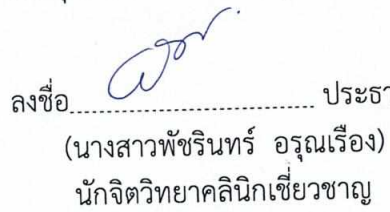 ลงชื่อ........................................ ประธา
(นางสาวพัชรินทร์ อรุณเรือง)
นักจิตวิทยาคลินิกเชี่ยวชาญ